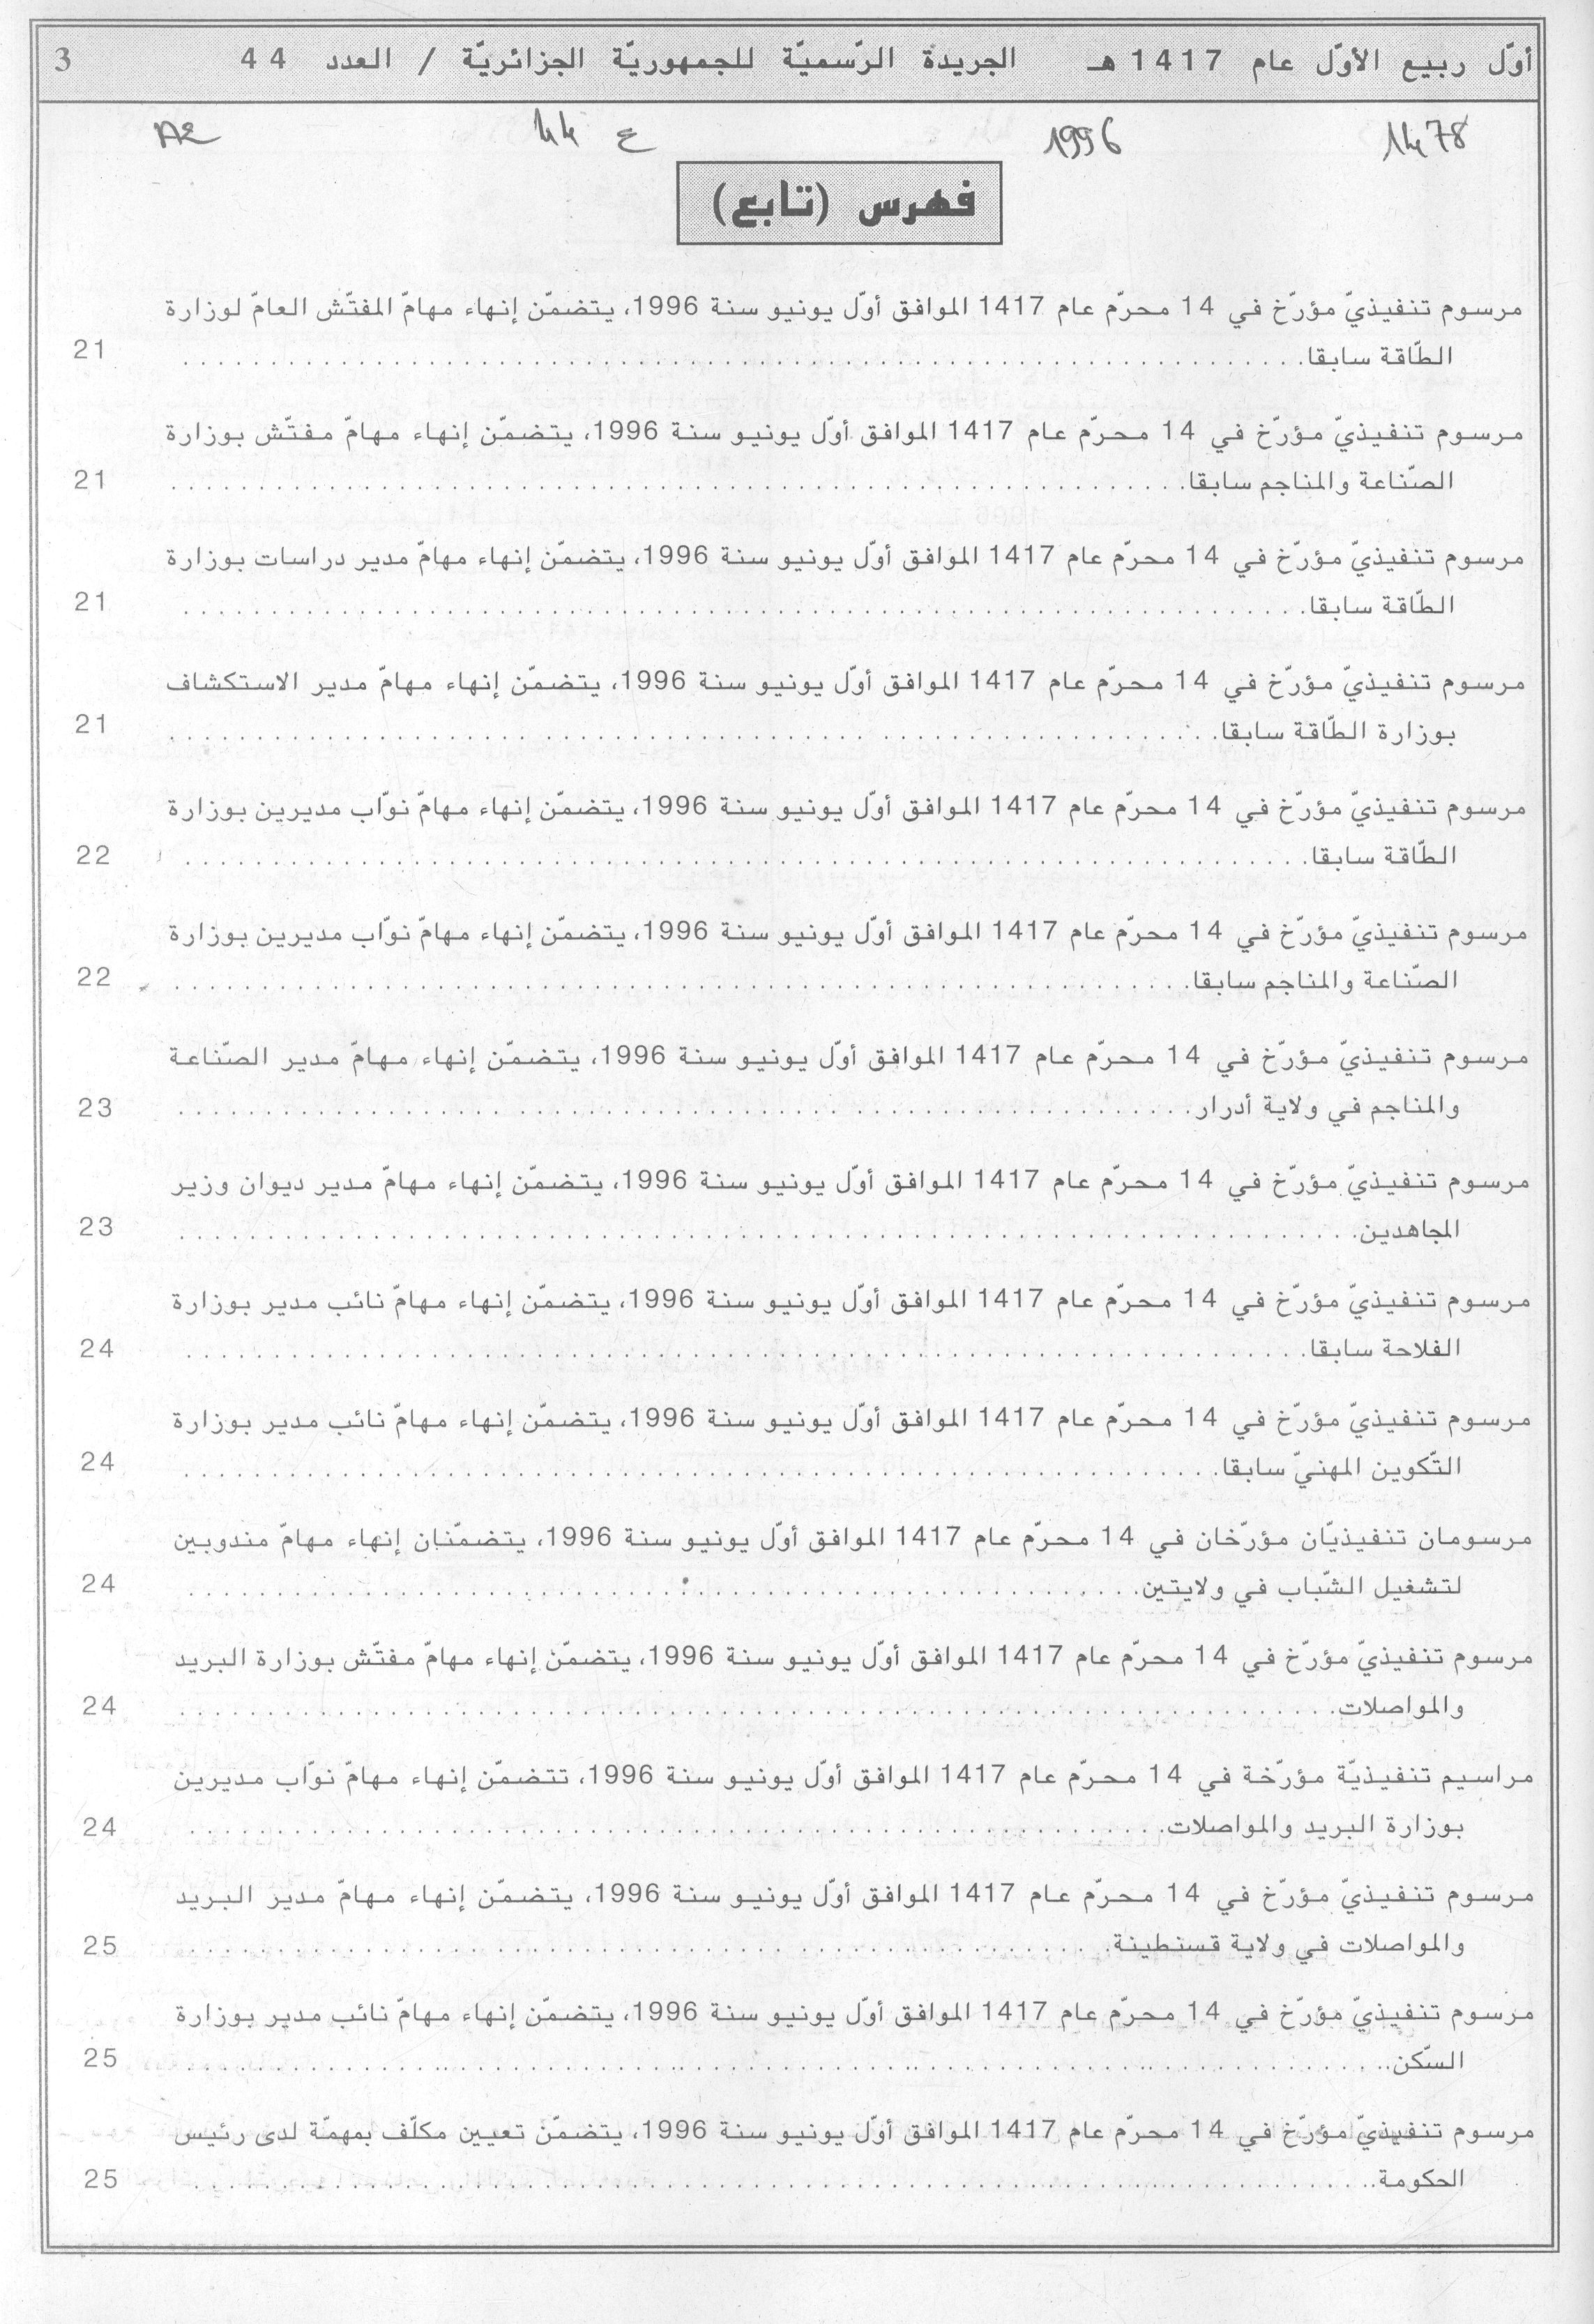 أوّل ربيع الأوّل عام 1417 هـ الجريدة الرّسميّة للجمهوريّة الجزائريّة / العدد 44 3
1478 1996 ع 44
فهرس (تابع)
مرسوم تنفيذيّ مؤرّخ في 14 محرّم عام 1417 الموافق أوّل يونيو سنة 1996، يتضمّن إنهاء مهامّ المفتّش العامّ لوزارة
الطّاقة سابقا. 21
مرسوم تنفيذيّ مؤرّخ في 14 محرّم عام 1417 الموافق أوّل يونيو سنة 1996، يتضمّن إنهاء مهامّ مفتّش بوزارة
الصّناعة والمناجم سابقا. 21
مرسوم تنفيذيّ مؤرّخ في 14 محرّم عام 1417 الموافق أوّل يونيو سنة 1996، يتضمّن إنهاء مهامّ مدير دراسات بوزارة
الطّاقة سابقا. 21
مرسوم تنفيذيّ مؤرّخ في 14 محرّم عام 1417 الموافق أوّل يونيو سنة 1996، يتضمّن إنهاء مهامّ مدير الاستكشاف
بوزارة الطّاقة سابقا. 21
مرسوم تنفيذيّ مؤرّخ في 14 محرّم عام 1417 الموافق أوّل يونيو سنة 1996، يتضمّن إنهاء مهامّ نوّاب مديرين بوزارة
الطّاقة سابقا. 22
مرسوم تنفيذيّ مؤرّخ في 14 محرّم عام 1417 الموافق أوّل يونيو سنة 1996، يتضمّن إنهاء مهامّ نوّاب مديرين بوزارة
الصّناعة والمناجم سابقا. 22
مرسوم تنفيذيّ مؤرّخ في 14 محرّم عام 1417 الموافق أوّل يونيو سنة 1996، يتضمّن إنهاء مهامّ مدير الصّناعة
والمناجم في ولاية أدرار. 23
مرسوم تنفيذيّ مؤرّخ في 14 محرّم عام 1417 الموافق أوّل يونيو سنة 1996، يتضمّن إنهاء مهامّ مدير ديوان وزير
المجاهدين. 23
مرسوم تنفيذيّ مؤرّخ في 14 محرّم عام 1417 الموافق أوّل يونيو سنة 1996، يتضمّن إنهاء مهامّ نائب مدير بوزارة
الفلاحة سابقا. 24
مرسوم تنفيذيّ مؤرّخ في 14 محرّم عام 1417 الموافق أوّل يونيو سنة 1996، يتضمّن إنهاء مهامّ نائب مدير بوزارة
التّكوين المهنيّ سابقا. 24
مرسومان تنفيذيّان مؤرّخان في 14 محرّم عام 1417 الموافق أوّل يونيو سنة 1996، يتضمّنان إنهاء مهامّ مندوبين
لتشغيل الشّباب في ولايتين. 24
مرسوم تنفيذيّ مؤرّخ في 14 محرّم عام 1417 الموافق أوّل يونيو سنة 1996، يتضمّن إنهاء مهامّ مفتّش بوزارة البريد
والمواصلات. 24
مراسيم تنفيذيّة مؤرّخة في 14 محرّم عام 1417 الموافق أوّل يونيو سنة 1996، تتضمّن إنهاء مهامّ نوّاب مديرين
بوزارة البريد والمواصلات. 24
مرسوم تنفيذيّ مؤرّخ في 14 محرّم عام 1417 الموافق أوّل يونيو سنة 1996، يتضمّن إنهاء مهامّ مدير البريد
والمواصلات في ولاية قسنطينة. 25
مرسوم تنفيذيّ مؤرّخ في 14 محرّم عام 1417 الموافق أوّل يونيو سنة 1996، يتضمّن إنهاء مهامّ نائب مدير بوزارة
السّكن. 25
مرسوم تنفيذيّ مؤرّخ في 14 محرّم عام 1417 الموافق أوّل يونيو سنة 1996، يتضمّن تعيين مكلّف بمهمّة لدى رئيس
الحكومة. 25